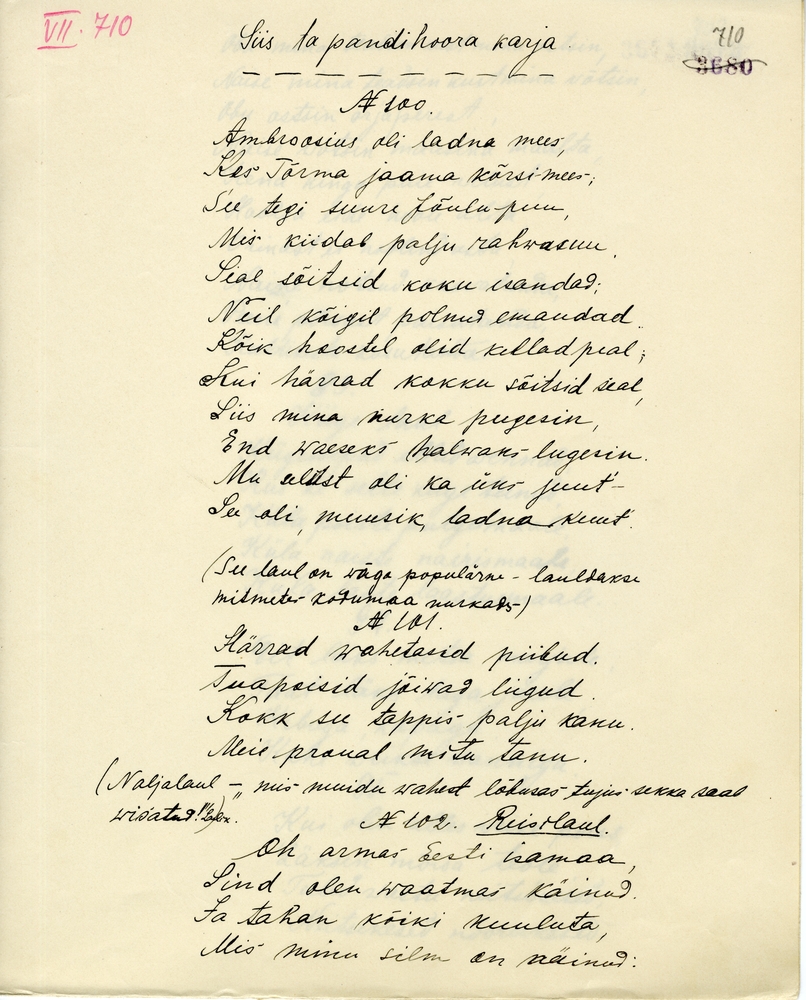 VII. 710
710
3680
Siis ta pandi hoora karja.
№ 100.
Ambroosius oli ladna mees,
Kes Tõrma jaama kõrsimees;
See tegi suure Jõulu-puu,
Mis kiidab palju rahwasuu.
Seal sõitsid koku isandad;
Neil kõigil polnud emandad.
Kõik hoostel olid kellad peal;
Kui härrad kokku sõitsid seal,
Siis mina nurka pugesin,
End waeseks halwaks lugesin.
Mu seltst oli ka üks juut -
See oli, muusik, ladna kuut.
(See laul on wäga populärne - lauldakse
mitmetes kodumaa nurkades-)
№ 101.
Härrad wahetasid piibud.
Tuapoisid jõiwad liigud.
Kokk see tappis palju kanu.
Meie proual mitu tanu.
(Naljalaul - „mis muidu wahest lõbusas tujus sekka saab
wisatud!"
№ 102. Reisilaul.
Oh armas Eesti isamaa,
Sind olen waatmas käinud.
Ja tahan kõiki kuuluta,
Mis minu silm on näinud: